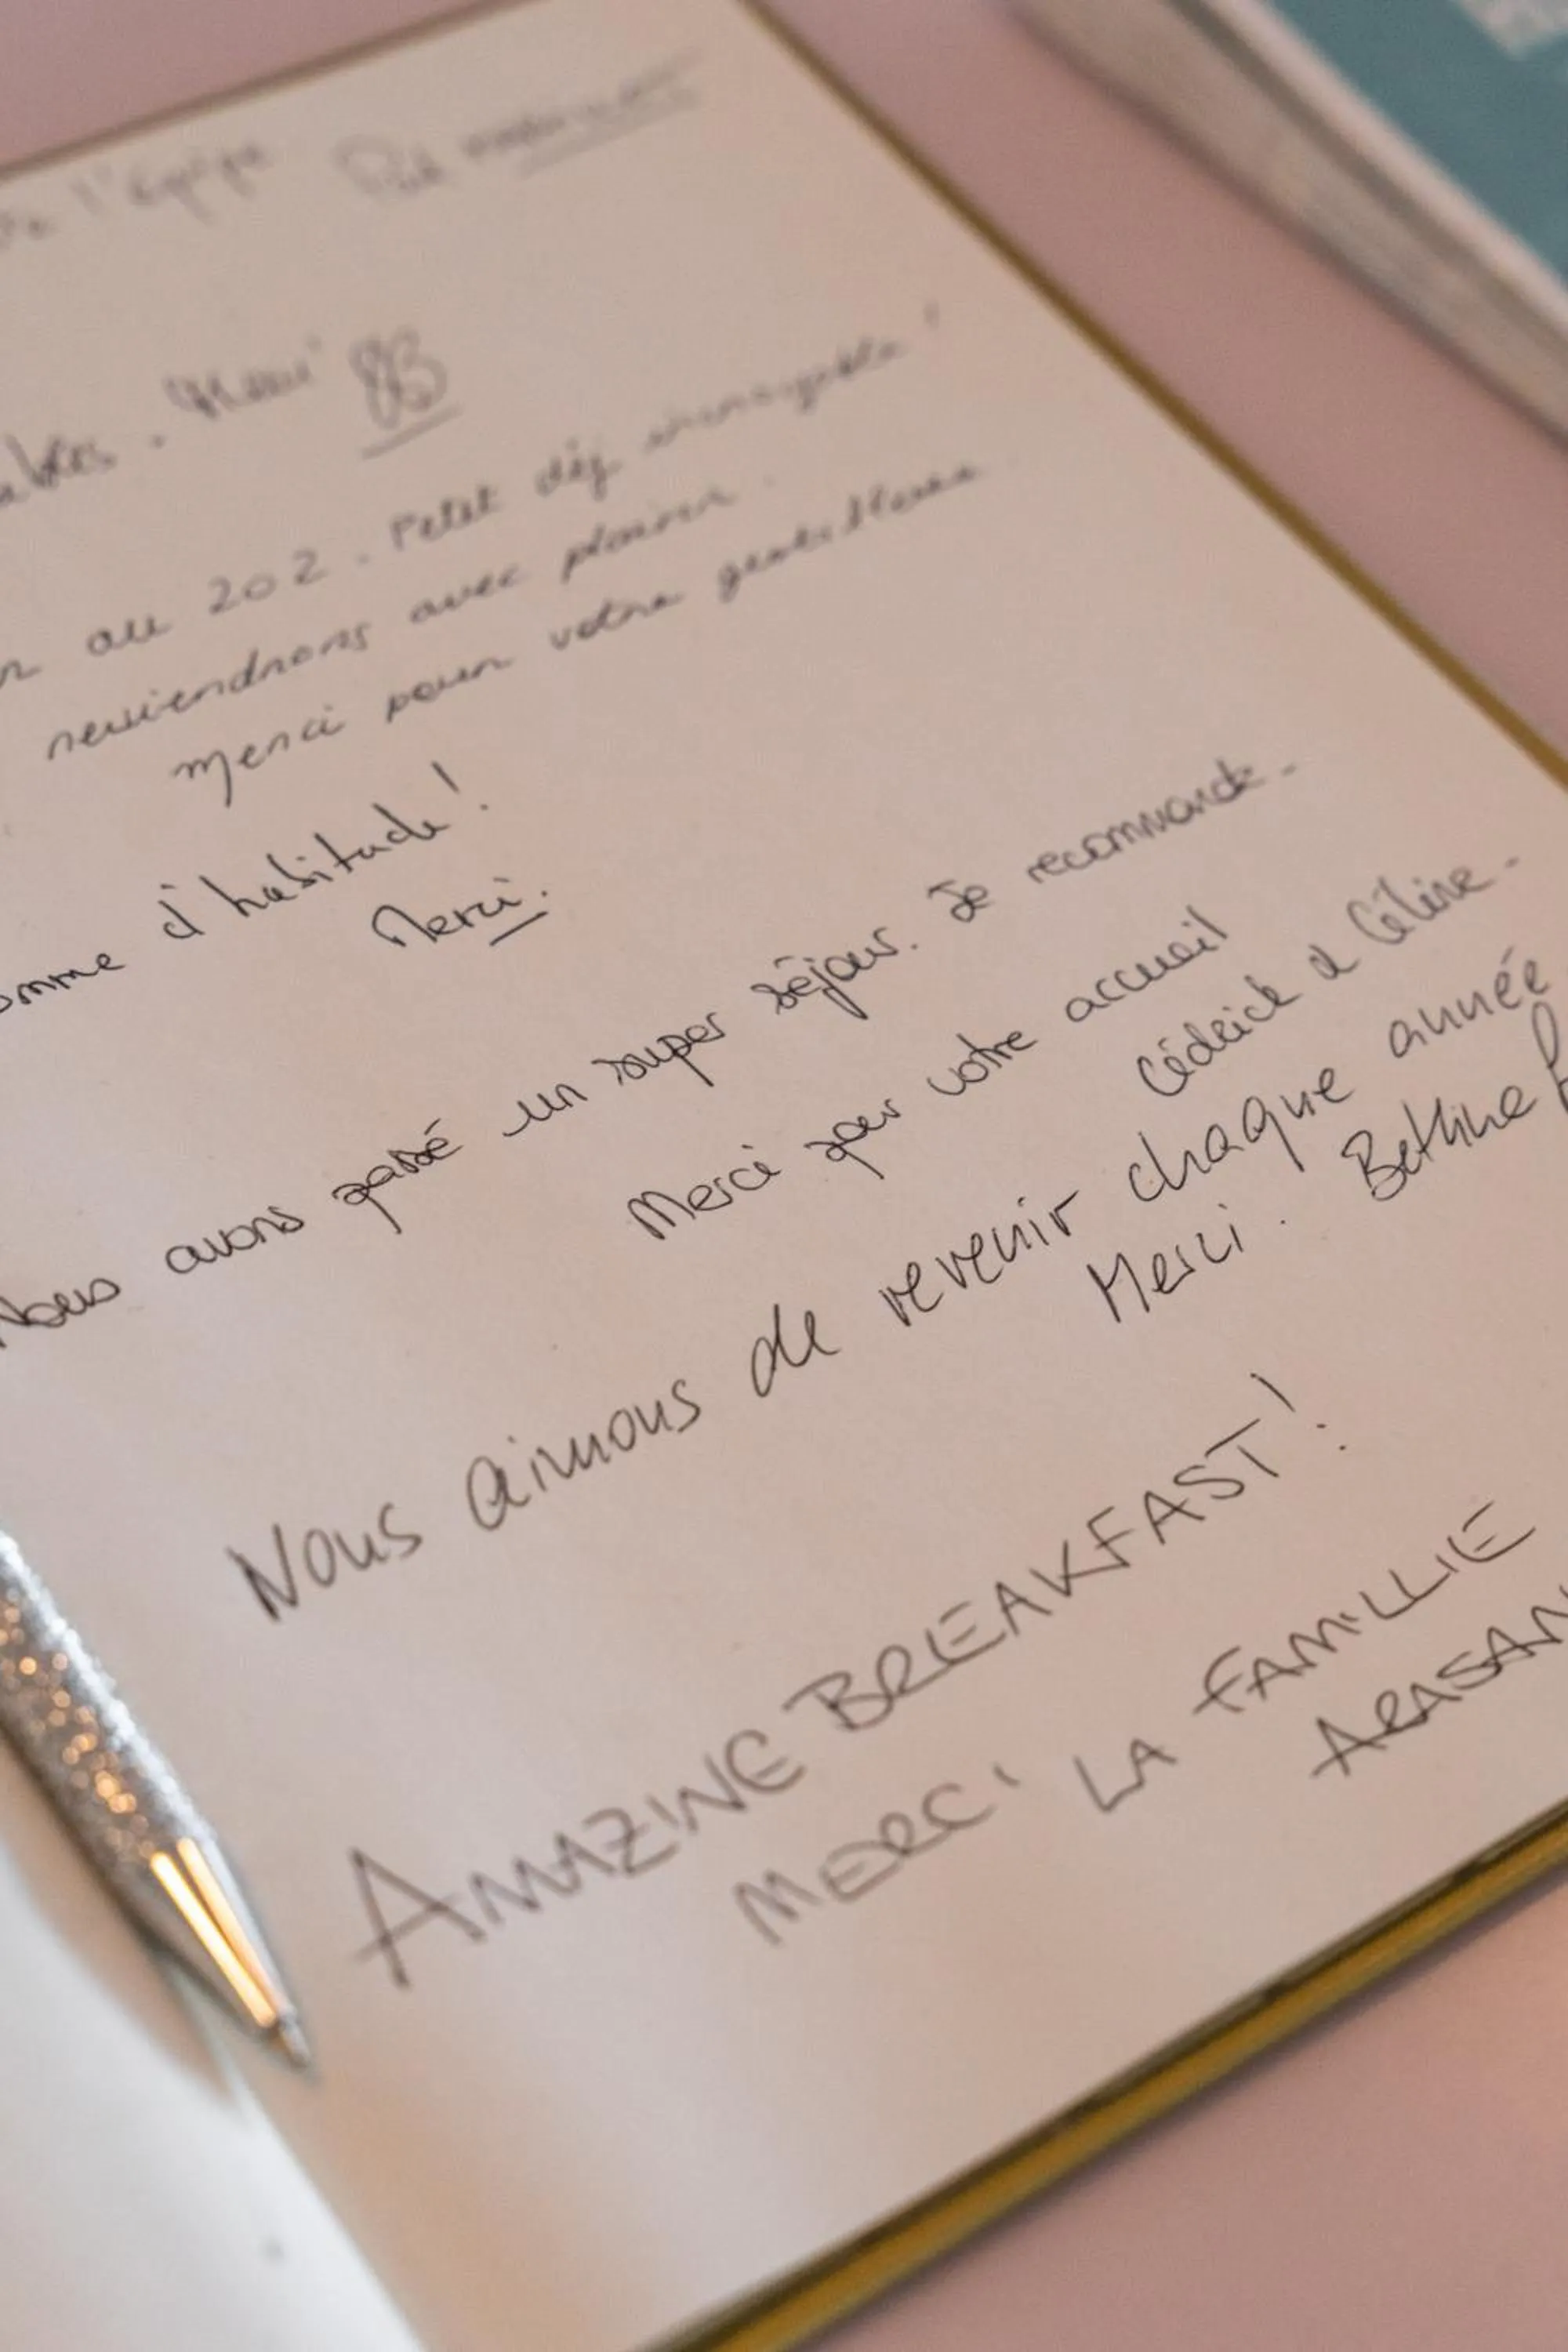 l'équipe
Merci
au 202. Petit déj incroyable !
reviendrons avec plaisir.
merci pour votre gentillesse
d'habitude !
Merci.
Nous avons passé un super séjour. Je recommande.
Merci pour votre accueil
Cédrick & Céline.
Nous aimons de revenir chaque année
Merci. Bettina
AMAZING BREAKFAST!
MERCI LA FAMILLIE